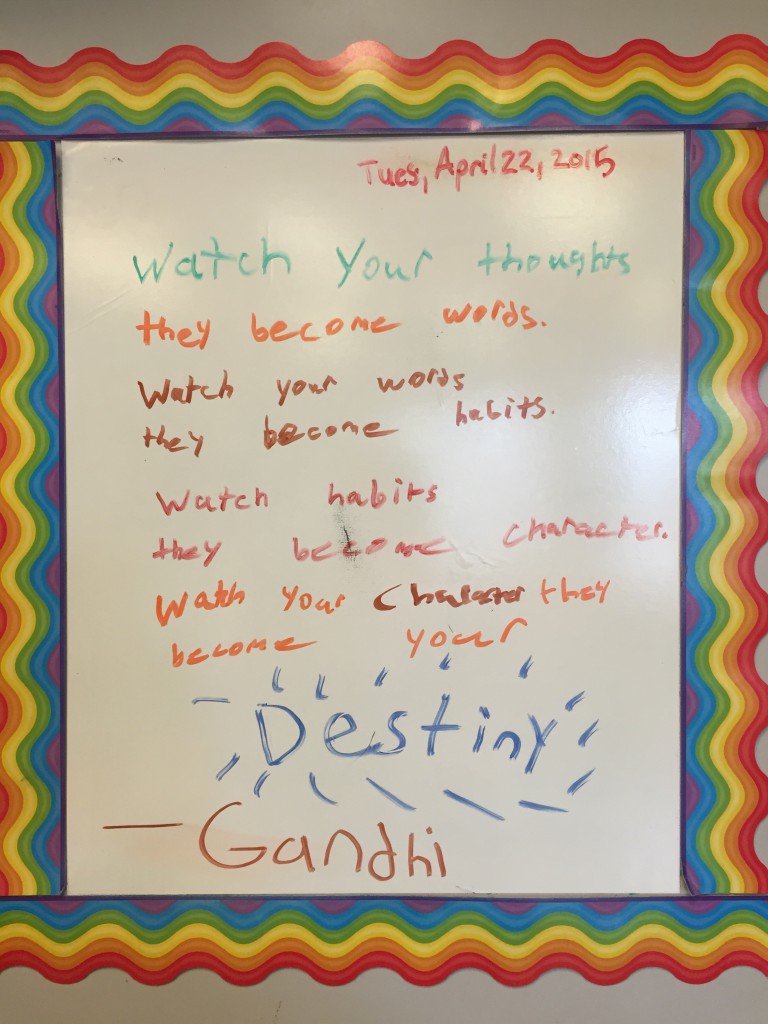 Tues, April 22, 2015
Watch your thoughts
they become words.
Watch your words
they become habits.
Watch habits
they become character.
Watch your Character they
become your
Destiny
—Gandhi